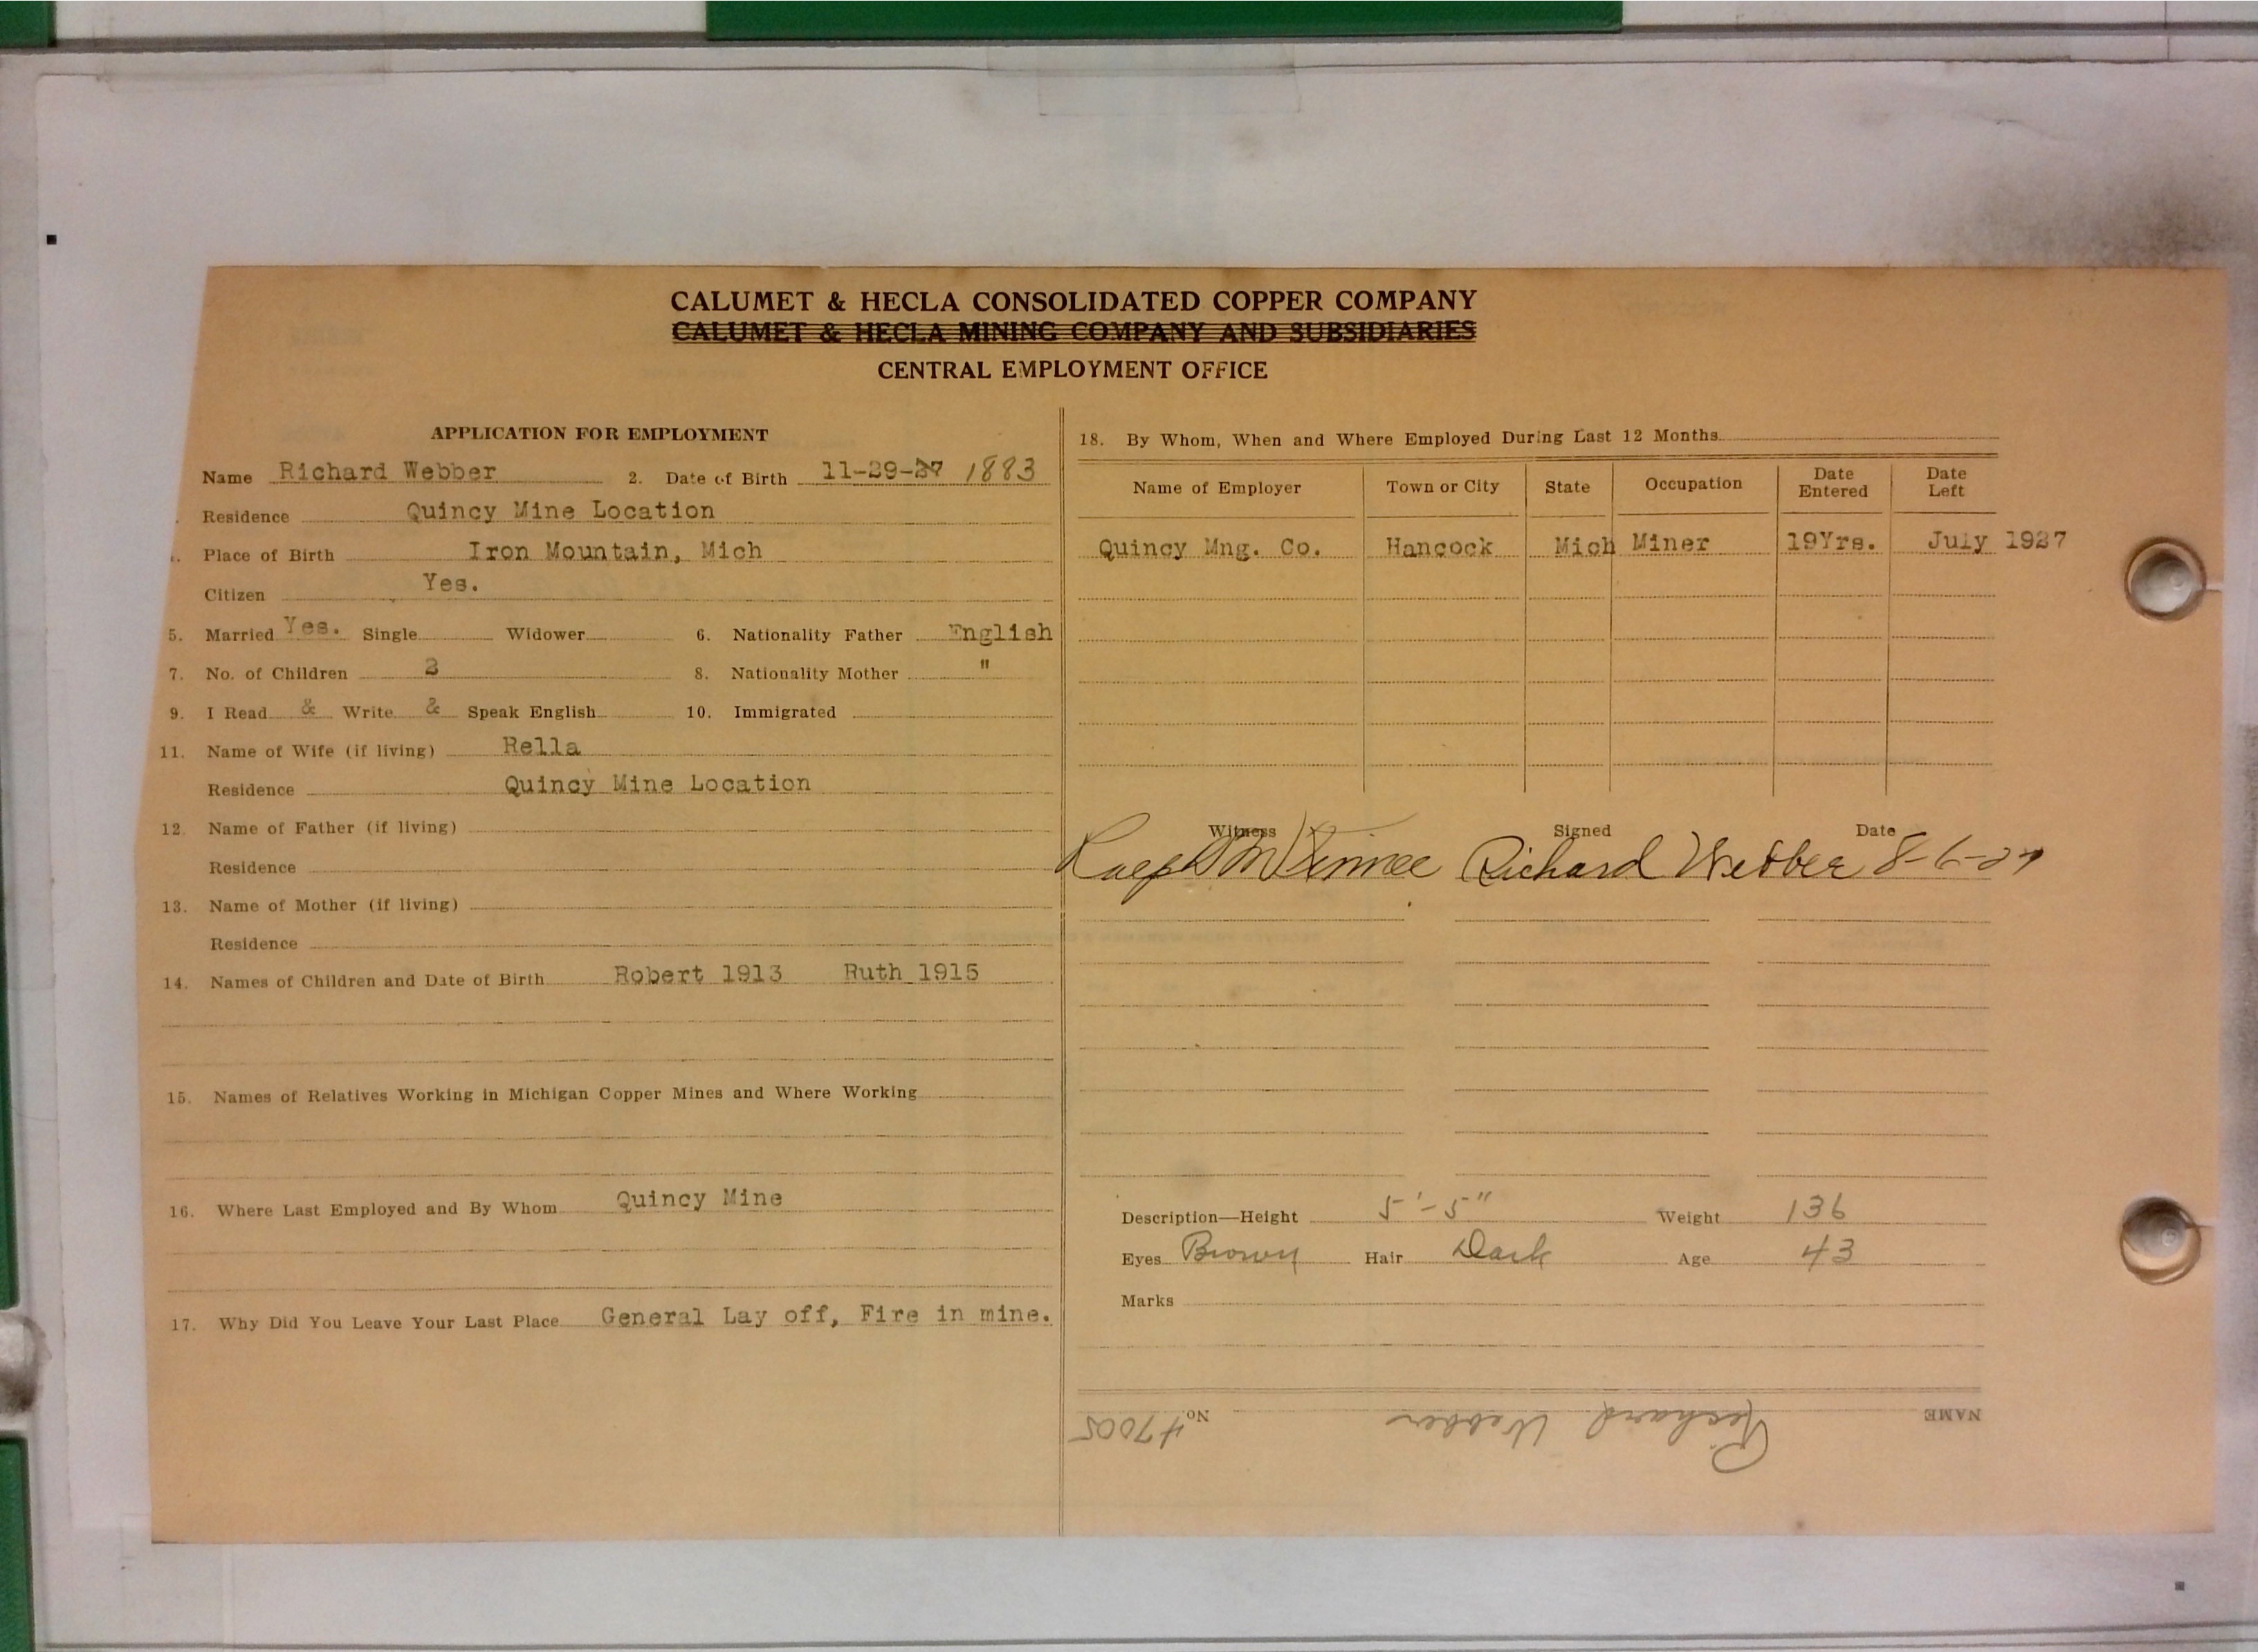 CALUMET & HECLA CONSOLIDATED COPPER COMPANY
CALUMET & HECLA MINING COMPANY AND SUBSIDIARIES
CENTRAL EMPLOYMENT OFFICE
APPLICATION FOR EMPLOYMENT
Name Richard Webber 2. Date of Birth 11-29-27 1883
Residence Quincy Mine Location
Place of Birth Iron Mountain, Mich
Citizen Yes.
5. Married Yes. Single Widower 6. Nationality Father English
7. No. of Children 2 8. Nationality Mother "
9. I Read & Write & Speak English 10. Immigrated
11. Name of Wife (if living) Rella
Residence Quincy Mine Location
12. Name of Father (if living)
Residence
13. Name of Mother (if living)
Residence
14. Names of Children and Date of Birth Robert 1913 Ruth 1915
15. Names of Relatives Working in Michigan Copper Mines and Where Working
16. Where Last Employed and By Whom Quincy Mine
17. Why Did You Leave Your Last Place General Lay off, Fire in mine.
18. By Whom, When and Where Employed During Last 12 Months
Name of Employer Town or City State Occupation Date Entered Date Left
Quincy Mng. Co. Hancock Mich Miner 19Yrs. July 1927
Witness Signed Date
Ralph Richard Webber 8-6-27
Description—Height 5'-5" Weight 136
Eyes Brown Hair Dark Age 43
Marks
NAME Richard Webber No. 47005